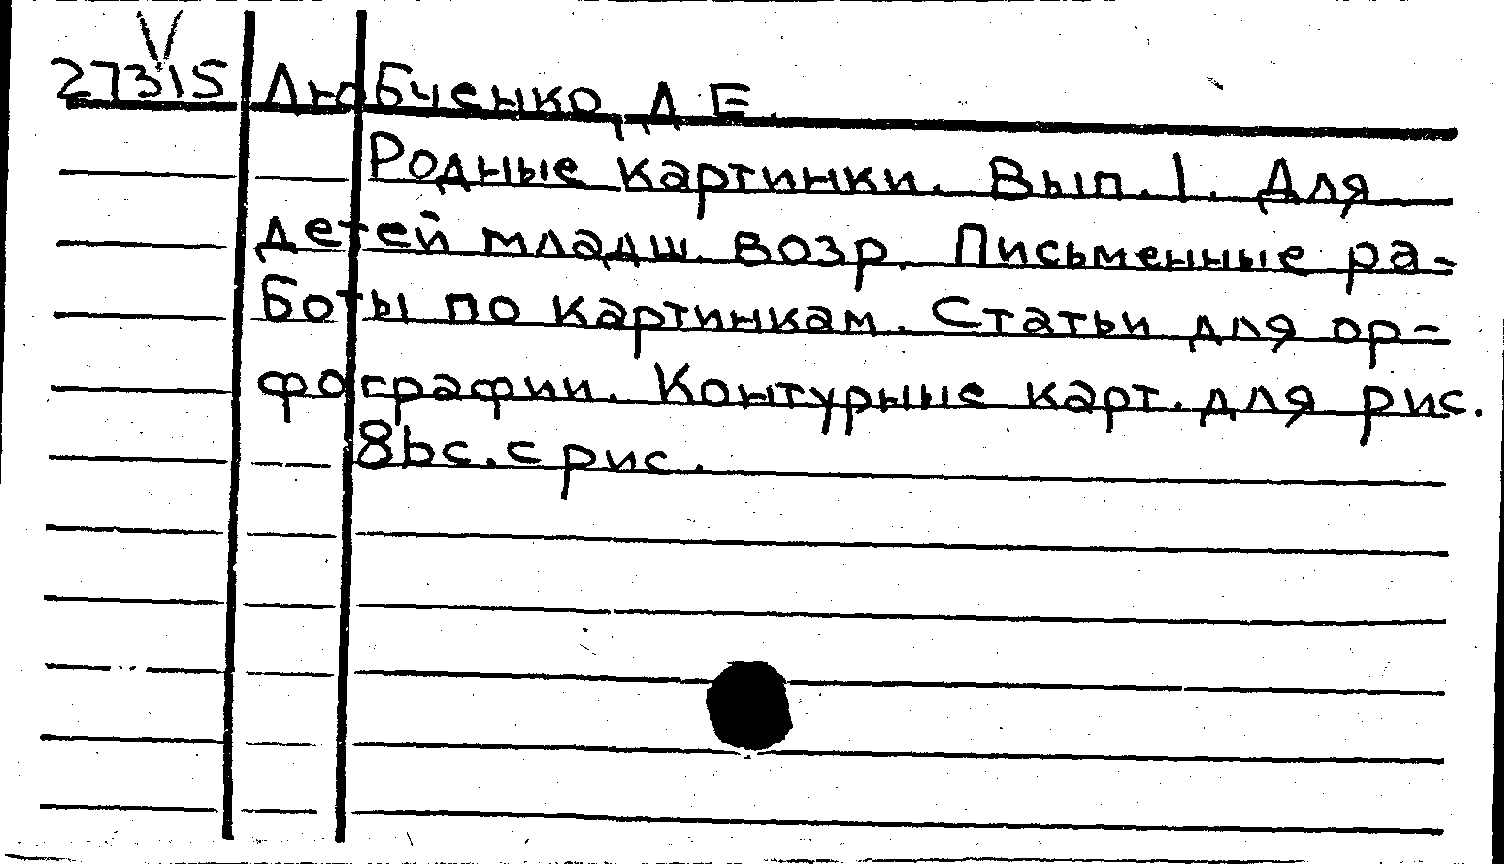 V
27315 Любченко, Д. Е.
Родные картинки. Вып. 1. Для
детей младш. возр. Письменные ра-
боты по картинкам. Статьи для ор-
фографии. Контурные карт. для рис.
8bc. с рис.